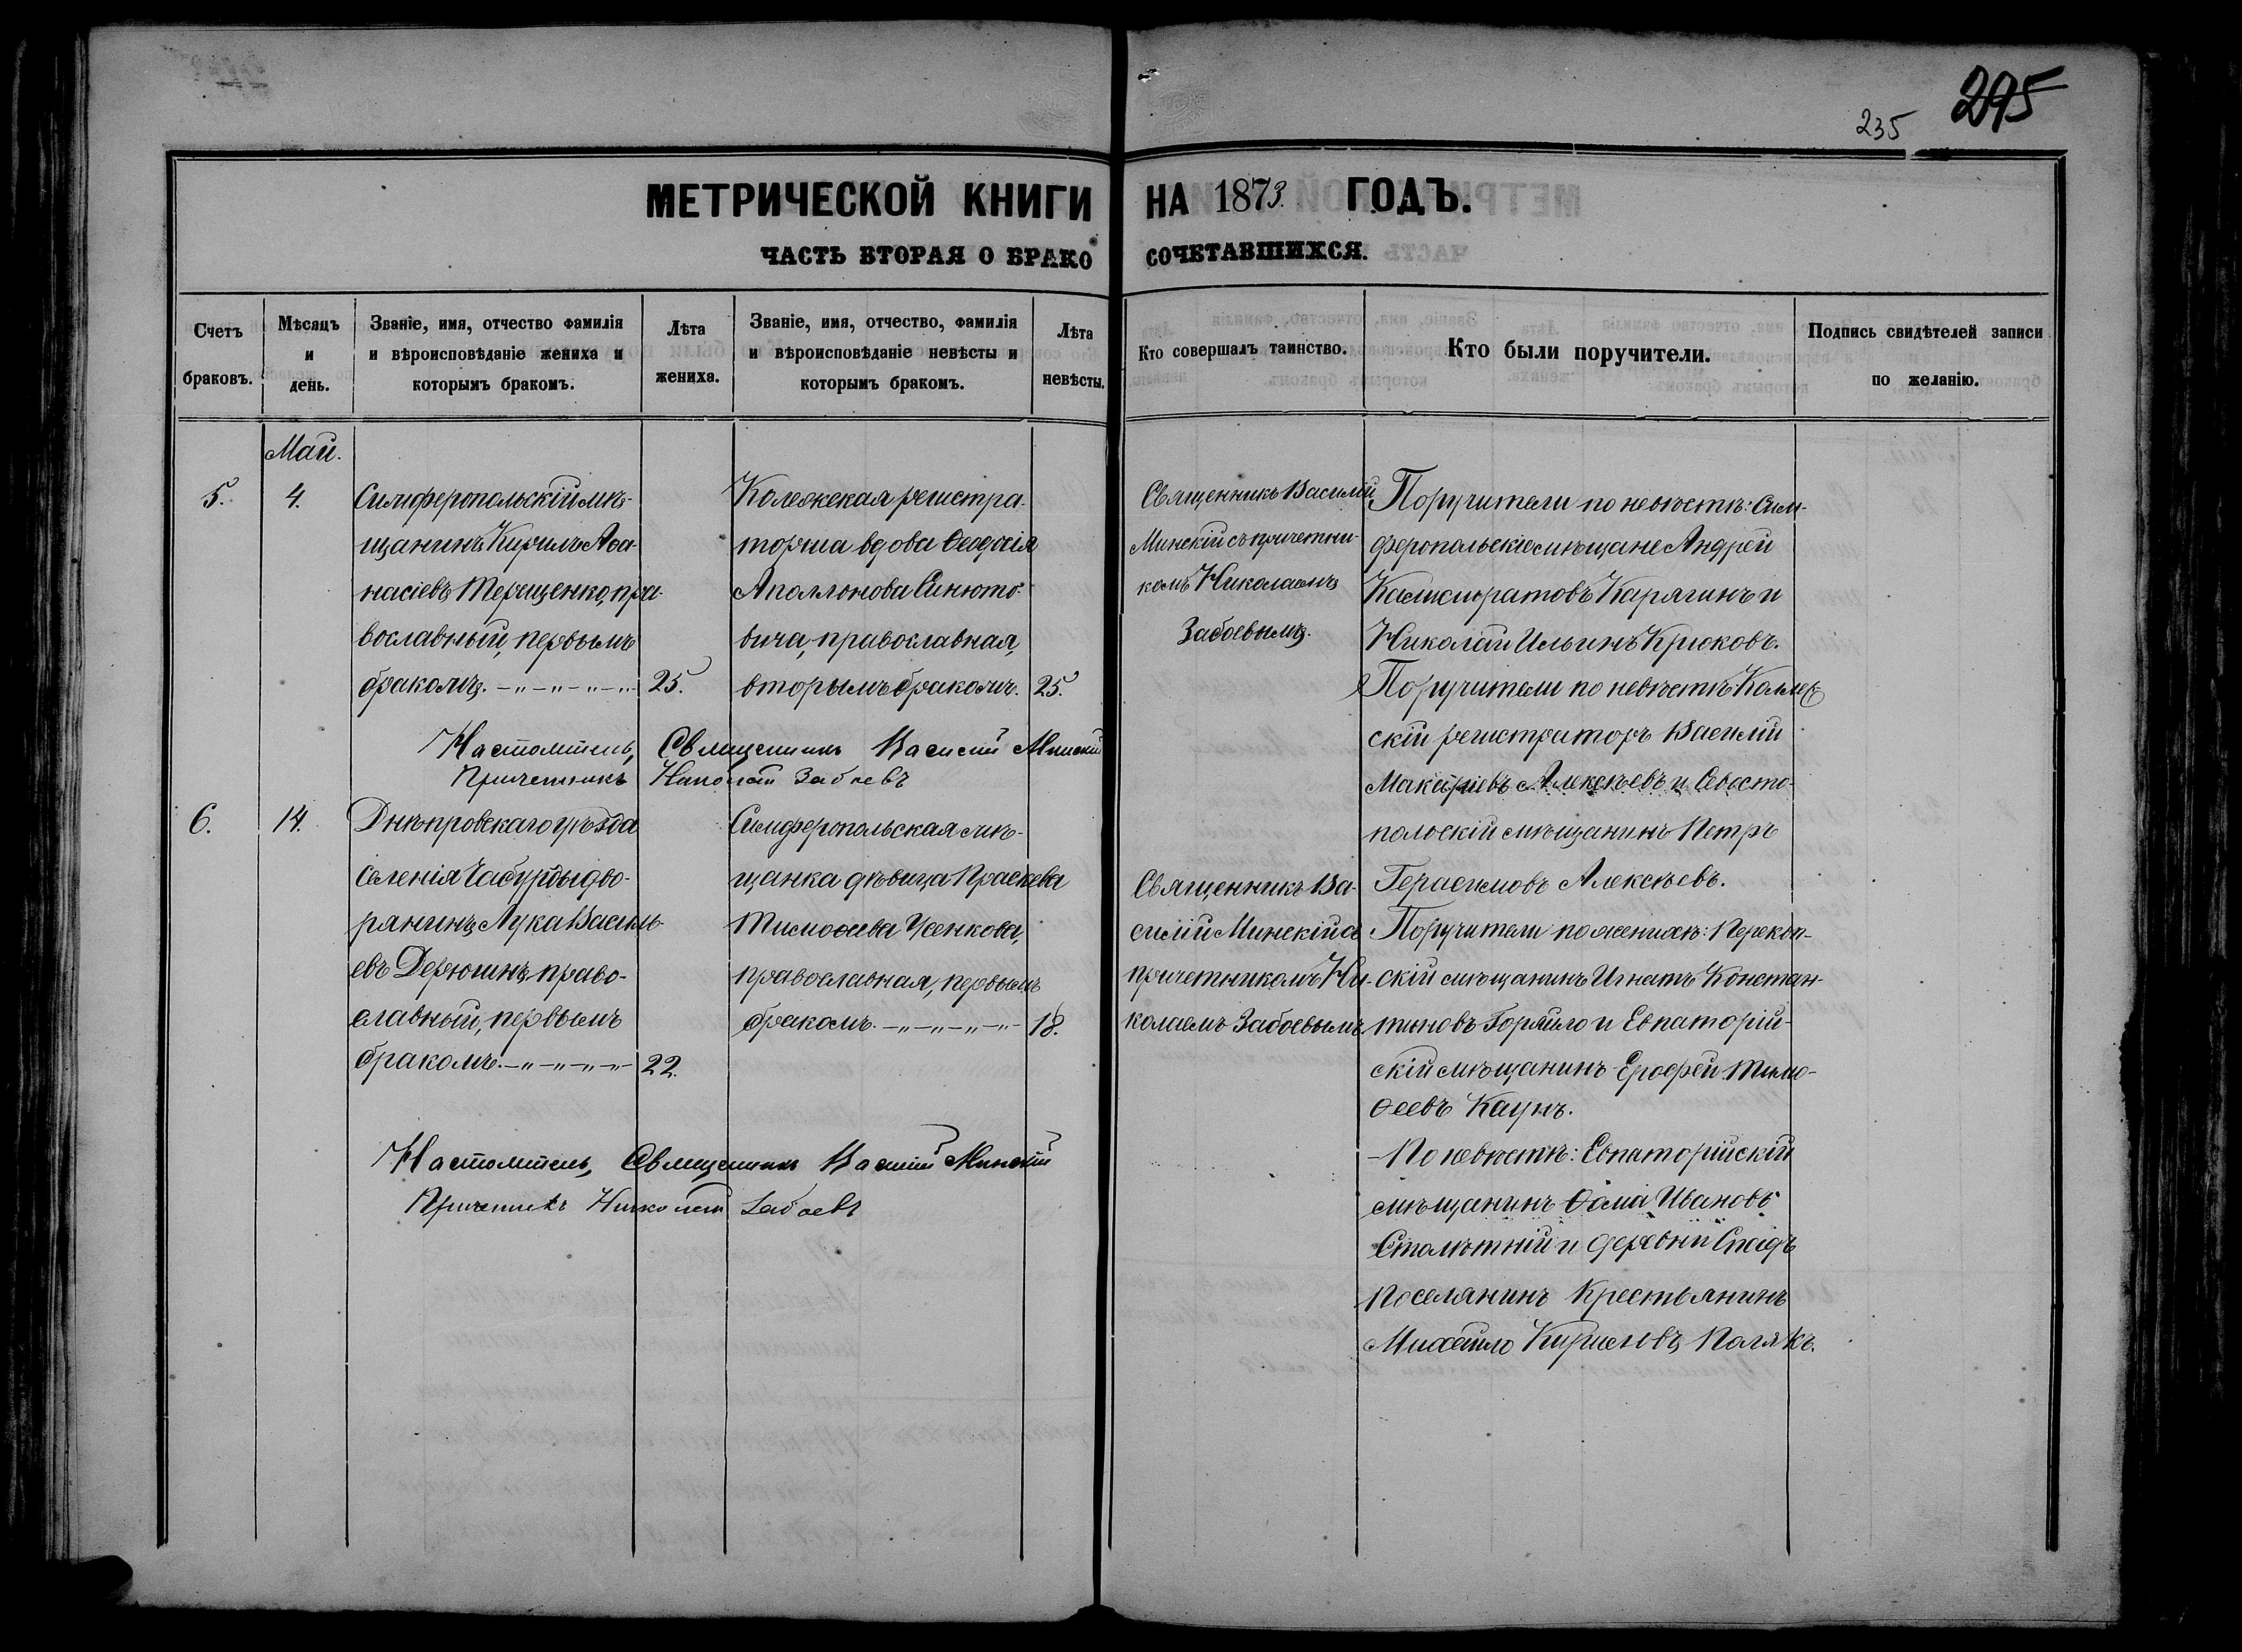 295
235
МЕТРИЧЕСКОЙ КНИГИ НА 1873. ГОДЪ.
ЧАСТЬ ВТОРАЯ О БРАКО СОЧЕТАВШИХСЯ.
Счетъ браковъ.
Мѣсяцъ и день.
Званіе, имя, отчество фамилія и вѣроисповѣданіе жениха и которымъ бракомъ.
Лѣта жениха.
Званіе, имя, отчество, фамилія и вѣроисповѣданіе невѣсты и которымъ бракомъ.
Лѣта невѣсты.
Кто совершалъ таинство.
Кто были поручители.
Подпись свидѣтелей записи по желанію.
Май.
5.
4.
Симферопольскій мѣ-
щанинъ Кирилъ Аѳа-
насіевъ Терещенко, пра-
вославный, первымъ
бракомъ. -"-"-"- 25.
Колежская регистра-
торша вдова Ѳеодосія
Аполлонова Синюто-
вича, православная,
вторымъ бракомъ. 25.
Священникъ Василій
Минскій съ причетни-
комъ Николаемъ
Забоевымъ.
Поручители по невѣстѣ: Сим-
феропольскіе мѣщане Андрей
Карягинъ и
Николай Ильинъ Крюковъ.
Поручители по невѣстѣ Коллеж
скій регистраторъ Василій
Макаріевъ Алексѣевъ и Севасто-
польскій мѣщанинъ Петръ
Герасимовъ Алексѣевъ.
Настоятель, Священникъ Василій Минскій
Причетникъ Николай Забоевъ
6.
14.
Днѣпровскаго уѣзда
селенія Чабурды дво-
рянинъ Лука Василь-
евъ Дерюгинъ, право-
славный, первымъ
бракомъ. -"-"-"- 22.
Симферопольская мѣ-
щанка дѣвица Праскева
Тимоѳеева Усенкова,
православная, первымъ
бракомъ. -"-"-"- 18.
Священникъ Ва-
силій Минскій съ
причетникомъ Ни-
колаемъ Забоевымъ
Поручители по женихѣ: Перекоп-
скій мѣщанинъ Игнатъ Констан-
тиновъ Горяйло и Евпаторій-
скій мѣщанинъ Ерофей Тимо-
ѳеевъ Каунъ.
-По невѣстѣ: Евпаторійскій
мѣщанинъ Ѳома Ивановъ
Столѣтній и деревни
поселянинъ Крестьянинъ
Михайло Кириловъ Полякъ.
Настоятель, Священникъ Василій Минскій
Причетникъ Николай Забоевъ